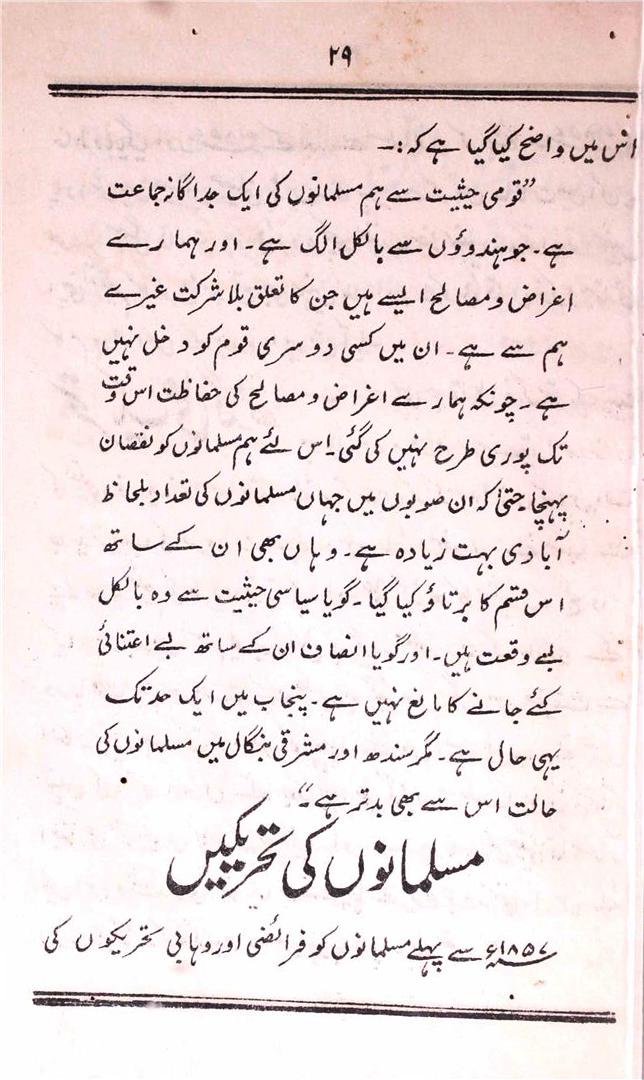 ۲۹
اس میں واضح کیا گیا ہے کہ:۔
”قومی حیثیت سے ہم مسلمانوں کی ایک جداگانہ جماعت
ہے۔ جو ہندوؤں سے بالکل الگ ہے۔ اور ہمارے
اغراض و مصالح ایسے ہیں جن کا تعلق بلا شرکت غیرے
ہم سے ہے۔ ان میں کسی دوسری قوم کو دخل نہیں
ہے۔ چونکہ ہمارے اغراض و مصالح کی حفاظت اس وقت
تک پوری طرح نہیں کی گئی۔ اس لئے ہم مسلمانوں کو نقصان
پہنچا۔ حتیٰ کہ ان صوبوں میں جہاں مسلمانوں کی تعداد بلحاظ
آبادی بہت زیادہ ہے۔ وہاں بھی ان کے ساتھ
اس قسم کا برتاؤ کیا گیا۔ گویا سیاسی حیثیت سے وہ بالکل
بے وقعت ہیں۔ اور گویا انصاف ان کے ساتھ بے اعتنائی
کئے جانے کا مانع نہیں ہے۔ پنجاب میں ایک حد تک
یہی حال ہے۔ مگر سندھ اور مشرقی بنگال میں مسلمانوں کی
حالت اس سے بھی بدتر ہے۔“
مسلمانوں کی تحریکیں
۱۸۵۷ء سے پہلے مسلمانوں کو فرائضی اور وہابی تحریکوں کی